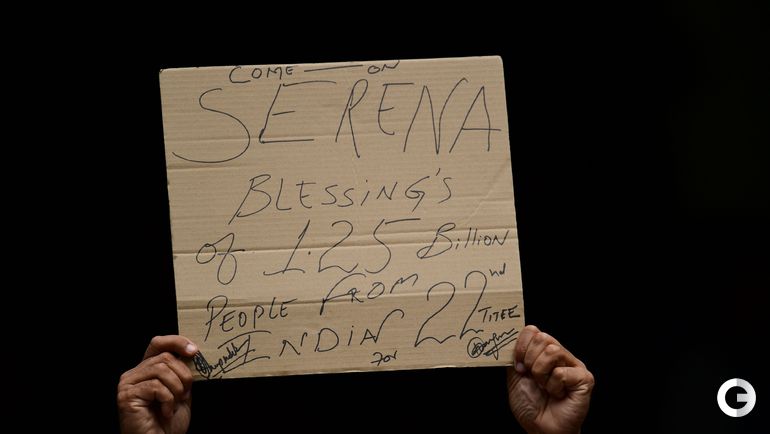 COME — ON
SERENA
BLESSING'S
of 1.25 Billion
PEOPLE FROM
INDIA for 22nd TITEE
G